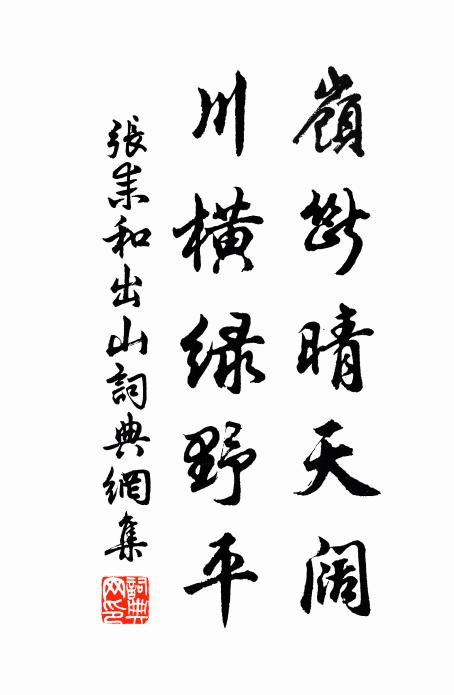 嶺斷晴天阔
川橫緑野平
張耒和出山詞典網集
詞典網印